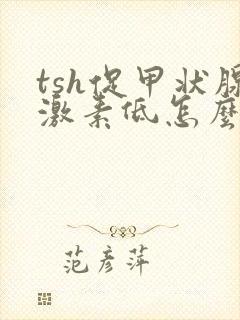 tsh促甲状腺
激素低怎麼
范彦萍